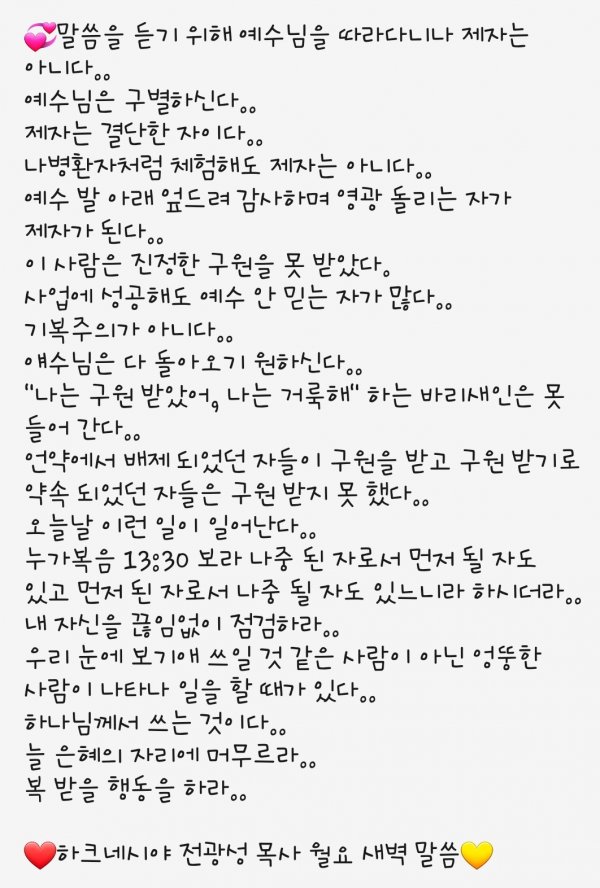 💞말씀을 듣기 위해 예수님을 따라다니나 제자는
아니다..
예수님은 구별하신다..
제자는 결단한 자이다..
나병환자처럼 체험해도 제자는 아니다..
예수 발 아래 엎드려 감사하며 영광 돌리는 자가
제자가 된다..
이 사람은 진정한 구원을 못 받았다.
사업에 성공해도 예수 안 믿는 자가 많다..
기복주의가 아니다..
얘수님은 다 돌아오기 원하신다..
"나는 구원 받았어, 나는 거룩해" 하는 바리새인은 못
들어 간다..
언약에서 배제 되었던 자들이 구원을 받고 구원 받기로
약속 되었던 자들은 구원 받지 못 했다..
오늘날 이런 일이 일어난다..
누가복음 13:30 보라 나중 된 자로서 먼저 될 자도
있고 먼저 된 자로서 나중 될 자도 있느니라 하시더라..
내 자신을 끊임없이 점검하라..
우리 눈에 보기애 쓰일 것 같은 사람이 아닌 엉뚱한
사람이 나타나 일을 할 때가 있다..
하나님께서 쓰는 것이다..
늘 은혜의 자리에 머무르라..
복 받을 행동을 하라..
❤️하크네시야 전광성 목사 월요 새벽 말씀💛